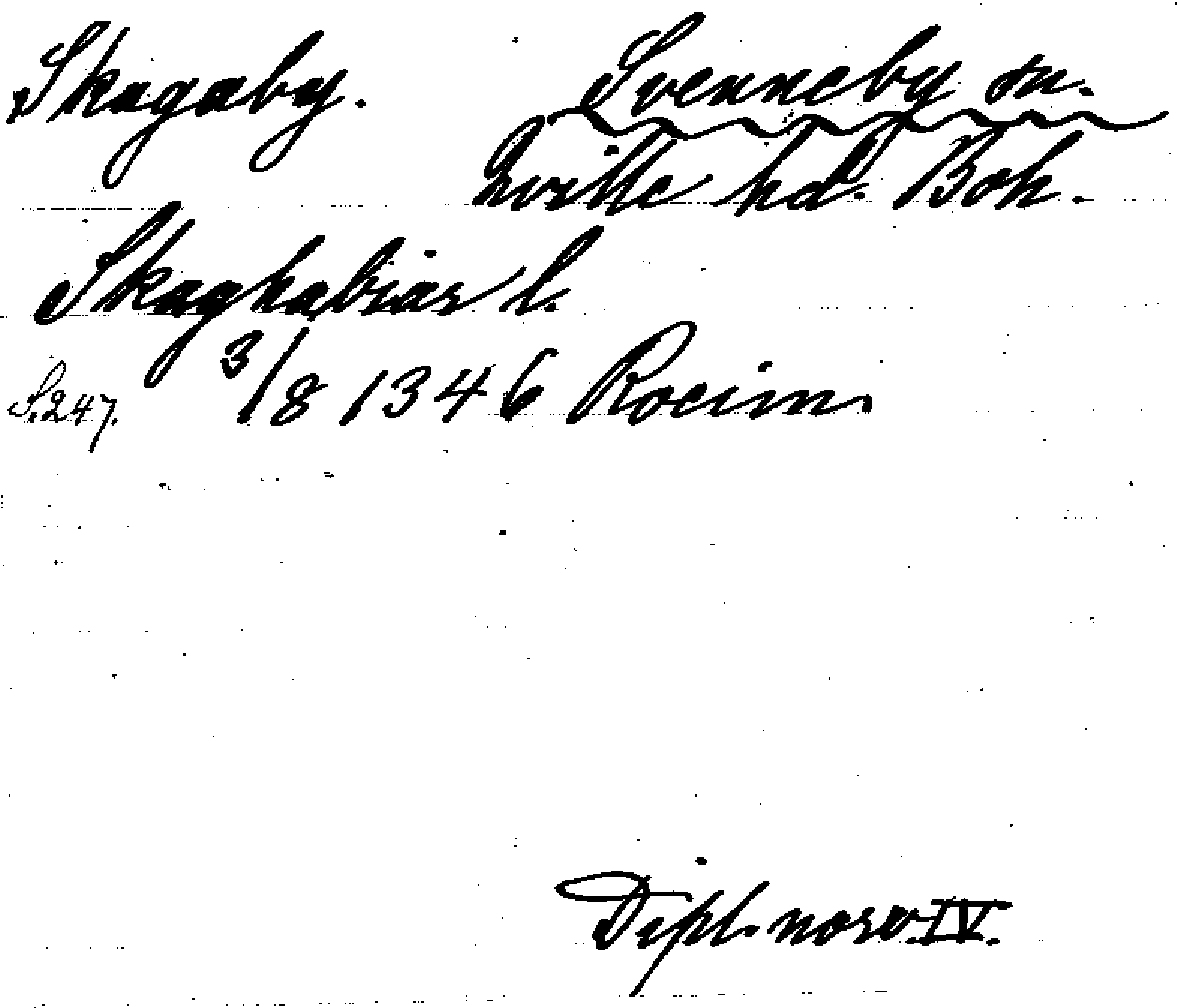 Skagaby. Svenneby sn.
Qville hd. Boh.
Skaghabiar l.
S. 247. 3/8 1346 Rocim.
Dipl. norv. IV.